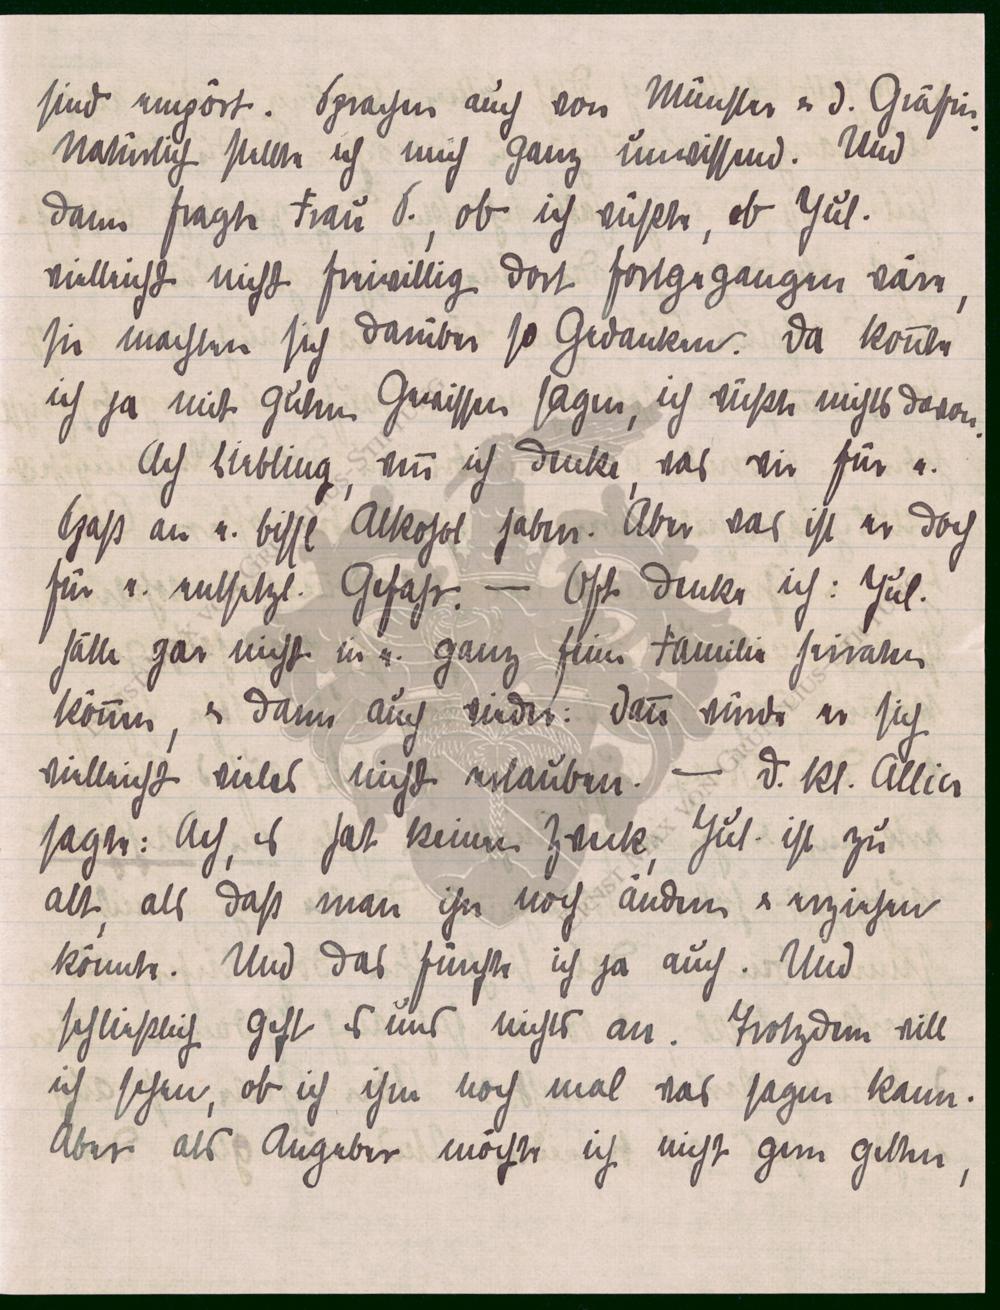 sind empört. Sprachen auch von Münster u d. Gräfin.
Natürlich stellte ich mich ganz unwissend. Und
dann fragte Frau S., ob ich wüßte, ob Jul.
vielleicht nicht freiwillig dort fortgegangen wäre,
sie machten sich darüber so Gedanken. Da kon̄te
ich ja mit gutem Gewissen sagen, ich wüßte nichts davon.
Ach Liebling, wen̄ ich denke, was wir für e.
Spaß an e. bissl Alkohol haben. Aber was ist er doch
für e. entsetzl. Gefahr. — Oft denke ich: Jul.
hätte gar nicht in e. ganz feine Familie heiraten
kön̄en, u dann auch wieder: dan̄ würde er sich
vielleicht vieles nicht erlauben. — D. kl. Allie
sagte: Ach, es hat keinen Zweck, Jul. ist zu
alt, als daß man ihn noch ändern u erziehen
könnte. Und das fürchte ich ja auch. Und
schließlich geht es uns nichts an. Trotzdem will
ich sehen, ob ich ihm noch mal was sagen kann.
Aber als Angeber möchte ich nicht gern gelten,